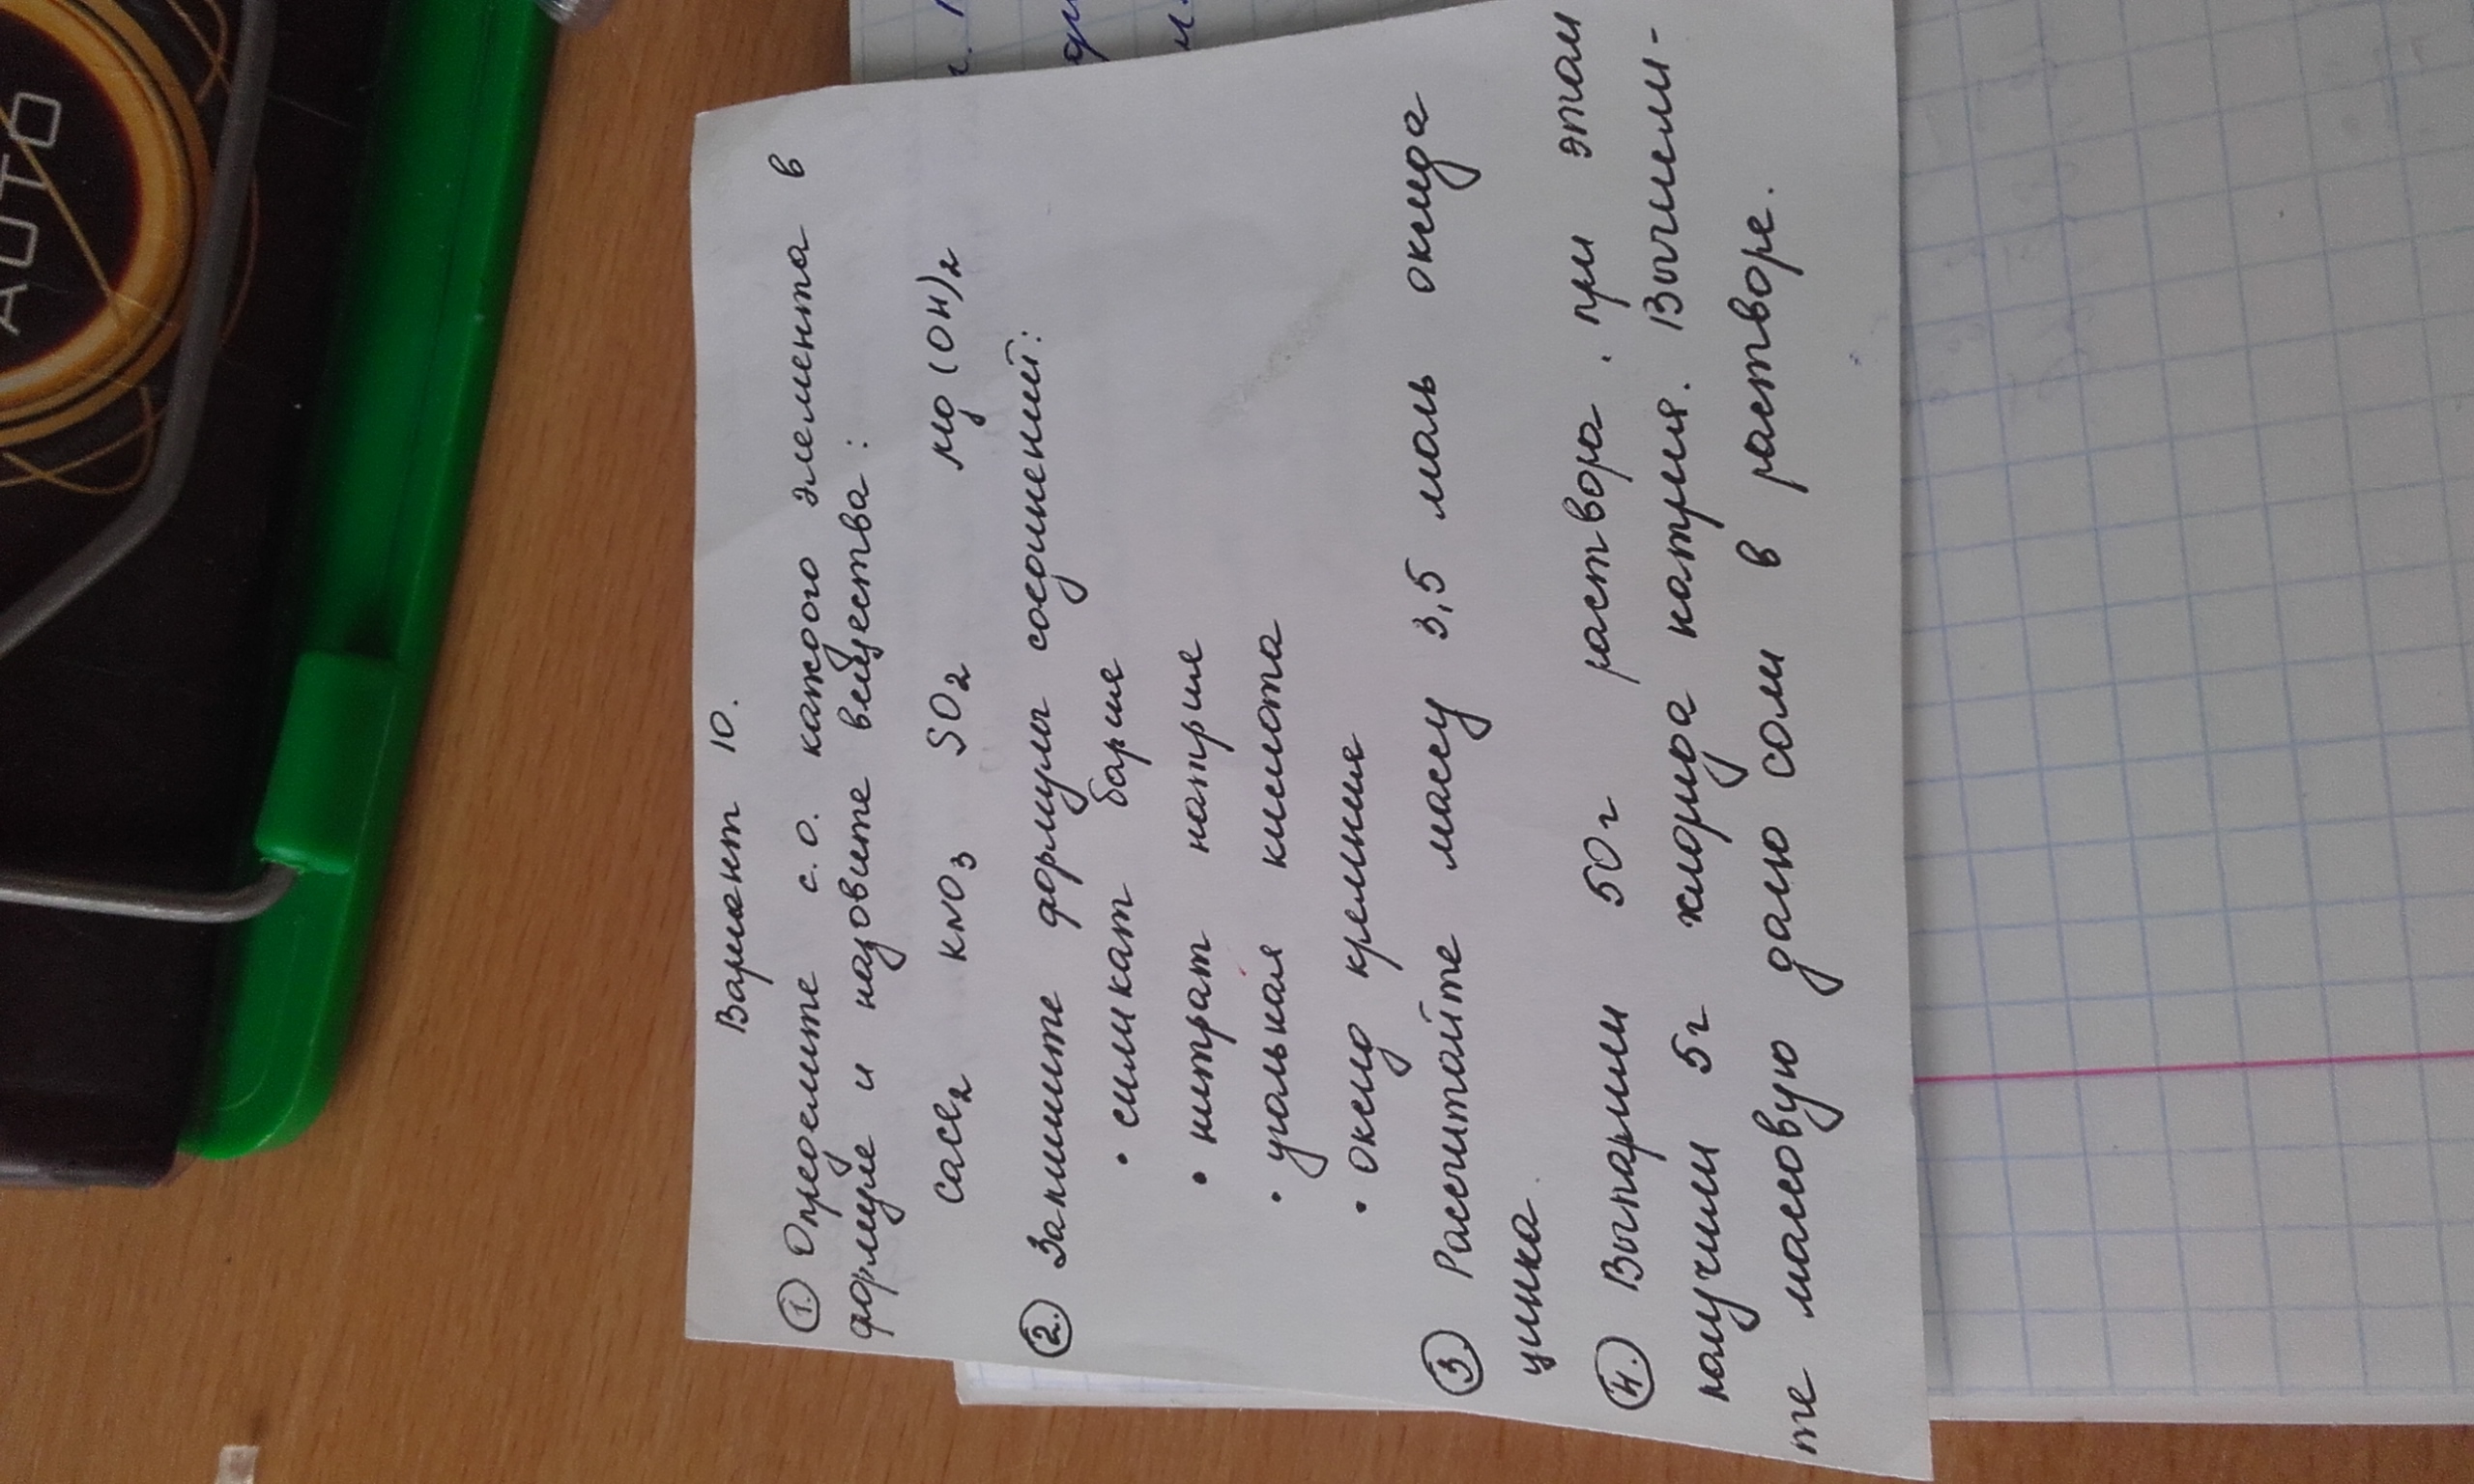 Вариант 10.
1. Определите с.о. каждого элемента в
формуле и назовите вещества:
CaCl₂ KNO₃ SO₂ Mg(OH)₂
2. Запишите формулы соединений:
• силикат бария
• нитрат натрия
• угольная кислота
• оксид кремния
3. Рассчитайте массу 3,5 моль оксида
цинка.
4. Выпарили 50г раствора. при этом
получили 5г хлорида натрия. Вычисли-
те массовую долю соли в растворе.
AUTO